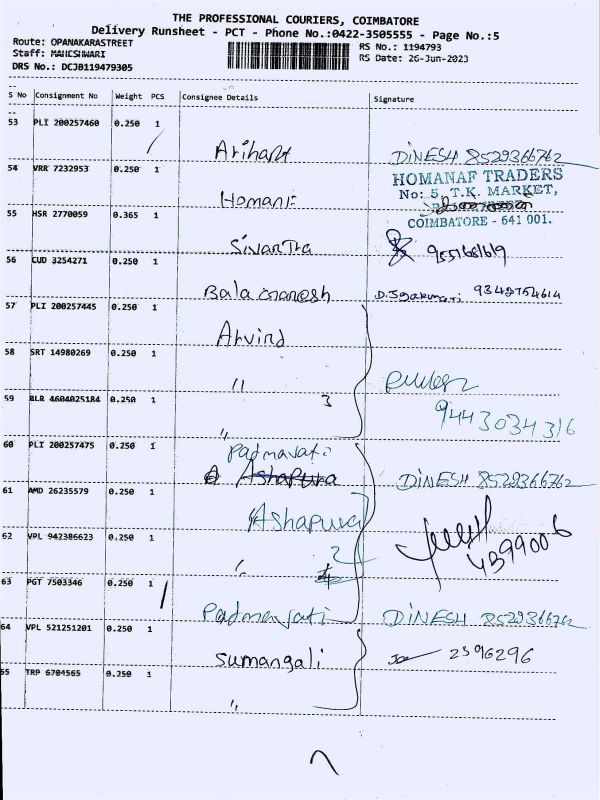 THE PROFESSIONAL COURIERS, COIMBATORE
Delivery Runsheet - PCT - Phone No.:0422-3505555 - Page No.:5
Route: OPANAKARASTREET
Staff: MAHESHWARI
DRS No.: DCJB119479305
RS No.: 1194793
RS Date: 26-Jun-2023
S No Consignment No Weight PCS Consignee Details Signature
53 PLI 200257460 0.250 1 Arihant DINESH 8529366762
54 VRR 7232953 0.250 1 Homanf
HOMANAF TRADERS
No: 5, T.K. MARKET,
COIMBATORE - 641 001.
55 HSR 2770059 0.365 1 9551681619
56 CUD 3254271 0.250 1 Bala Ganesh 9342754614
57 PLI 200257445 0.250 1 Arvind
58 SRT 14980269 0.250 1 〃
59 BLR 4604025184 0.250 1 〃 3 9443034316
60 PLI 200257475 0.250 1 Padmavati DINESH 8529366762
Ashapura
61 AMD 26235579 0.250 1 Ashapura
62 VPL 942386623 0.250 1 〃 2 4399006
63 PGT 7503346 0.250 1 Padmavati DINESH 8529366762
64 VPL 521251201 0.250 1 Sumangali 2396296
65 TRP 6704565 0.250 1 〃